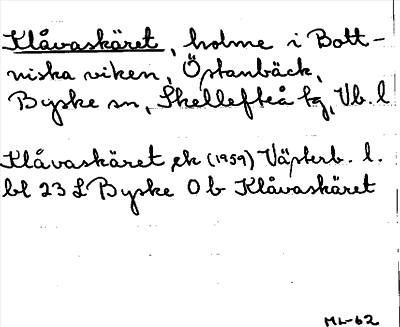 Klåvaskäret, holme i Bott-
niska viken, Östanbäck,
Byske sn, Skellefteå tg, Vb. l
Klåvaskäret ek (1959) Västerb. l.
bl 23 L Byske 0 b Klåvaskäret
ML-62